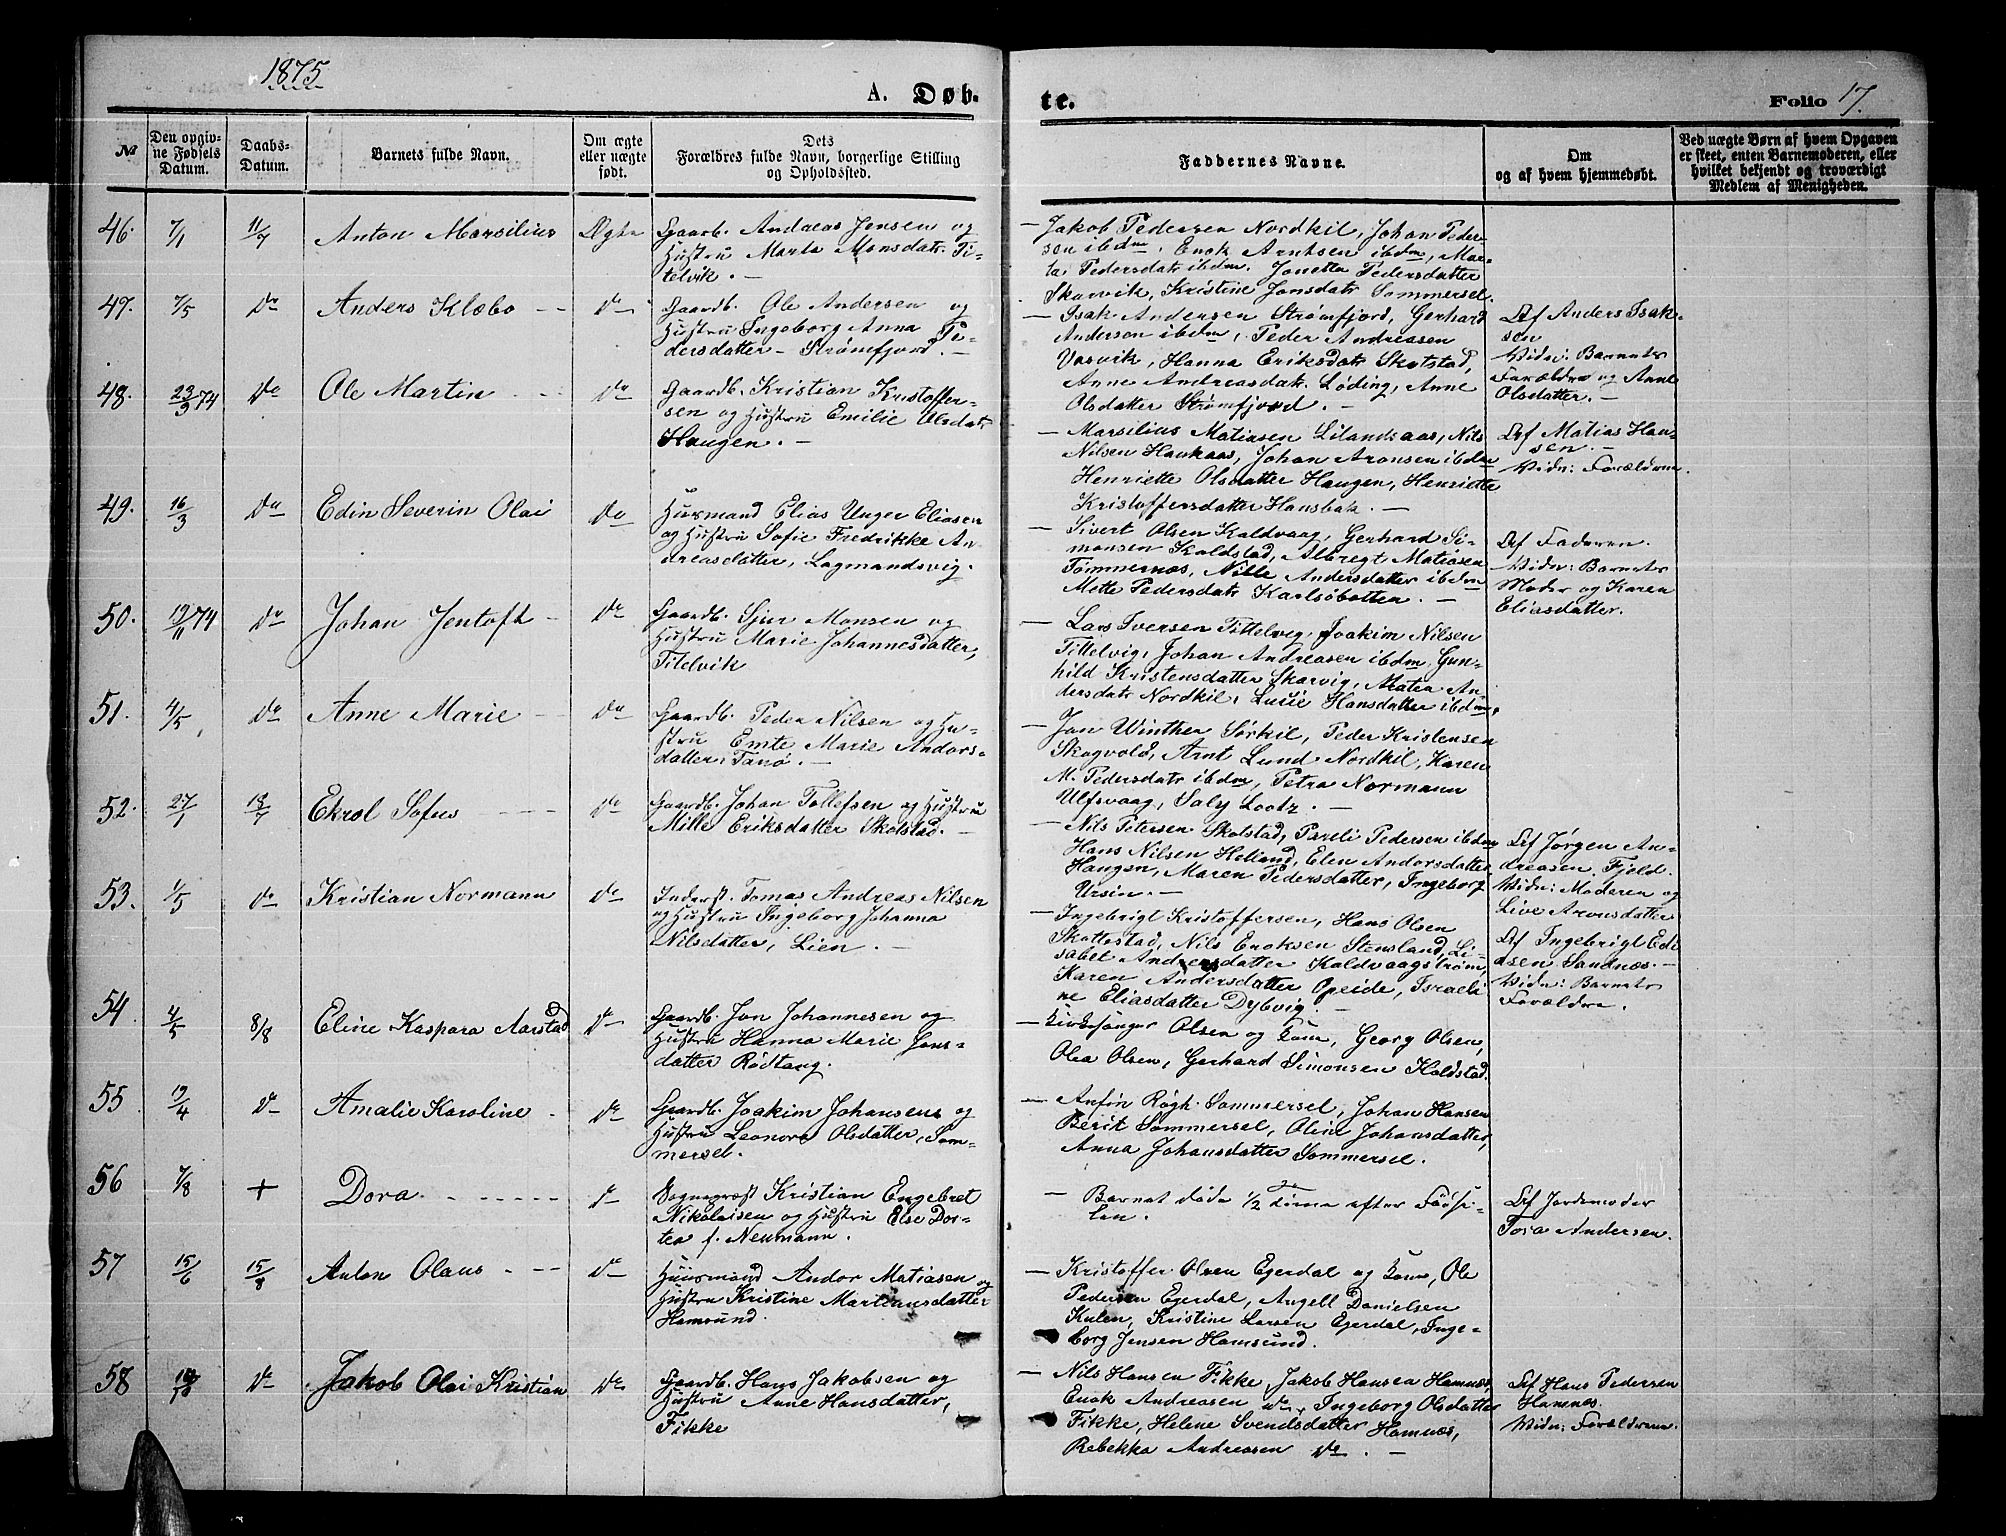 1875
A. Døb-
te.
Folio 17.
No
Den opgiv-
ne Fødsels
Datum.
Daabs-
Datum.
Barnets fulde Navn.
Om ægte
eller uægte
født.
Dets
Forældres fulde Navn, borgerlige Stilling
og Opholdssted.
Faddernes Navne.
Om
og af hvem hjemmedøbt.
Ved uægte Børn af hvem Opgaven
er skeet, enten Barnemoderen, eller
hvilket bekjendt og troværdigt
Medlem af Menigheden.
46. 7/1 11/7 Anton Marsilius Ægte
Gaardb. Andreas Jensen og
Hustru Marta Monsdatr. Ti-
telvik. —
— Jakob Pedersen Nordkil, Johan Peder-
sen ibdm, Enok Arntsen ibdm, Mar-
ta Pedersdatr ibdm. Jonetta Pedersdatter
Skarvik, Kristine Jonsdatr Sommersel.
47. 7/5 do Anders Klæbo do
Gaardb. Ole Andersen og
Hustru Ingeborg Anna Pe-
dersdatter - Strømfjord. —
— Isak Andersen Strømfjord, Gerhard
Andersen ibdm, Peder Andreasen
Vasvik, Hanna Eriksdatr Skotstad,
Anne Andreasdatr. Løding, Anne
Olsdatter Strømfjord. —
Af Anders Isak-
sen
Vidn: Barnets
Forældre og Anne
Olsdatter. —
48. 23/9 74 Do Ole Martin do
Gaardb. Kristian Kristoffer-
sen og Hustru Emilie Olsdatr
Haugen. —
— Marsilius Matiasen Lilandsaas, Nils
Nilsen Haukaas, Johan Aronsen ibdm
Henriette Olsdatter Haugen, Henriette
Kristoffersdatter Hansbak. —
Af Matias Han-
sen. —
Vidn: Forældrene.
49. 16/3 Do Edin Severin Olai do
Husmand Elias Unger Eliasen
og Hustru Sofie Fredrikke An-
dreasdatter, Lagmandsvig.
— Sivert Olsen Kaldvaag, Gerhard Si-
monsen Kaldstad, Albregt Matiasen
Tømmernæs, Nille Andersdatter ibdm
Mette Pedersdatr Karlsøbotten. —
Af Faderen.
Vidn: Barnets
Moder og Karen
Eliasdatter.
50. 19/11 74 do Johan Jentoft do
Gaardb. Sjur Monsen og
Hustru Marie Johannesdatter,
Titelvik
— Lars Iversen Tittelvig, Joakim Nilsen
Tittelvig, Johan Andreasen ibdm. Gun-
hild Kristensdatter Skarvig, Matea An-
dersdatr Nordkil, Lusie Hansdatter ibdm,
51. 4/5 do Anne Marie do
Gaardb. Peder Nilsen og Hu-
stru Emte Marie Andors-
datter, Tanø. —
— Jon Winther Sørkil, Peder Kristensen
Skogvold, Arnt Lund Nordkil, Karen
M. Pedersdatr ibdm, Petra Normann
Ulfsvaag, Saly Lootz. —
52. 27/1 12/7 Ekrol Sofus do
Gaardb. Johan Tollefsen og Hustru
Mille Eriksdatter Skotstad. —
— Nils Petersen Skotstad, Pareli Pedersen ibdm
Hans Nilsen Heland, Elen Andorsdatter
Haugen, Maren Pedersdatter, Ingeborg
Ursin. —
Af Jørgen An-
dreasen Fjeld.
Vidn: Moderen og
Live Aronsdatter
53. 1/5 do Kristian Normann do
Inderst. Tomas Andreas Nilsen
og Hustru Ingeborg Johanna
Nilsdatter, Lien. —
— Ingebrigt Kristoffersen, Hans Olsen
Skottestad, Nils Enoksen Stensland, Li-
sabet Andersdatter Kaldvaagstrøm,
Karen Andersdatter Opeide, Israeli-
ne Eliasdatter Dybvig. —
Af Ingebrigt Edi-
asen Sandnæs. —
Vidn: Barnets
Forældre.
54 4/5 8/8 Eline Kaspara Aarstad do
Gaardb. Jon Johannesen og
Hustru Hanna Marie Jons-
datter Rødtang.
— Kirkesanger Olsen og Kone, Georg Olsen,
Olea Olsen, Gerhard Simonsen Kaldstad.
55 19/4 do Amalie Karoline do
Gaardb. Joakim Johansen og
Hustru Leonora Olsdatter, Som-
mersel.
— Anfin Røgh Sommersel, Johan Hansen
Berit Sommersel, Oline Johansdatter,
Anna Johansdatter Sommersel.
56 7/8 + Dora do
Sognepræst Kristian Engebret
Nikolaisen og Hustru Else Dor-
tea f. Neumann.
— Barnet døde 1/2 Time efter Fødse-
len.
Af Jordemoder
Tora Andersen.
57 15/6 15/8 Anton Olaus do
Huusmand Andor Matiasen og
Hustru Kristine Martinusdatter
Hamsund.
— Kristoffer Olsen Egerdal og Kone, Ole
Pedersen Egerdal, Angell Danielsen
Kulen, Kristine Larsen Egerdal, Inge-
borg Jensen Hamsund.
58 do Jakob Olai Kristian do
Gaardb. Hans Jakobsen og
Hustru Anne Hansdatter,
Fikke
— Nils Hansen Fikke, Jakob Hansen Hamnæs,
Enok Andreasen do, Ingeborg Olsdatter
Fikke, Helene Svendsdatter Hamnæs,
Rebekka Andreasen do. —
Af Hans Pedersen
Hamnæs.
Vidn: Forældrene.